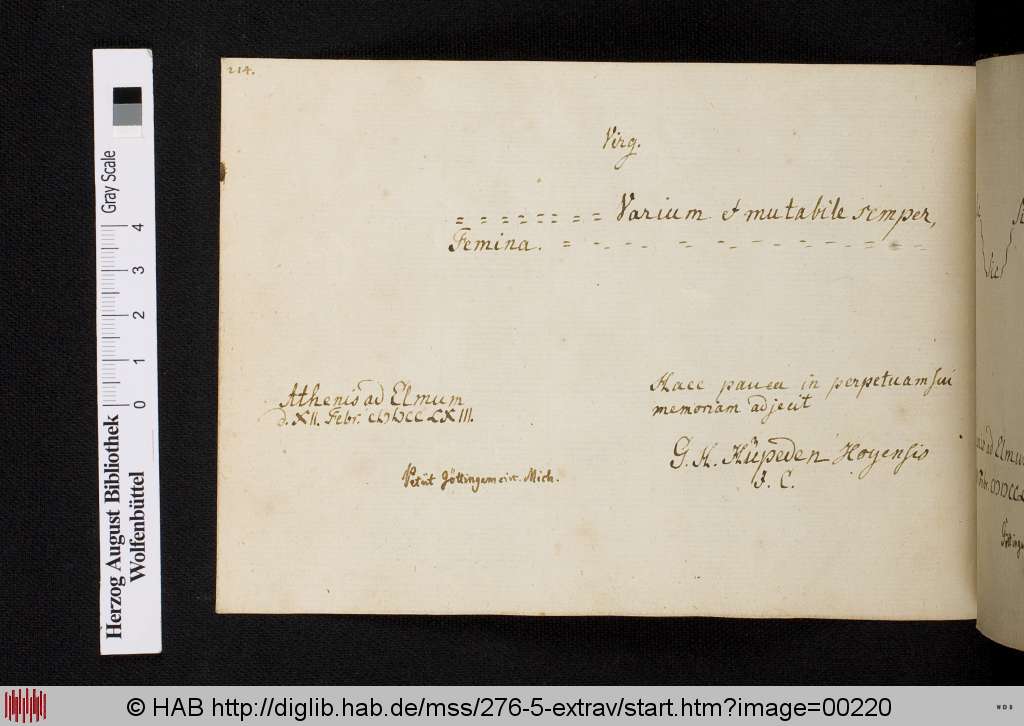 214.
Virg.
= = = = = = = = Varium et mutabile semper,
Femina. = - - - - - - - - - -
Athenis ad Elmum
d. XII. Febr. CIƆIƆCCLXIII.
Haec pauca in perpetuam sui
memoriam adjecit
G. H. Hüpeden Hoyensis
J. C.
Petiit Göttingam circ. Mich.
Herzog August Bibliothek
Wolfenbüttel
Gray Scale
0 1 2 3 4
© HAB http://diglib.hab.de/mss/276-5-extrav/start.htm?image=00220
HAB